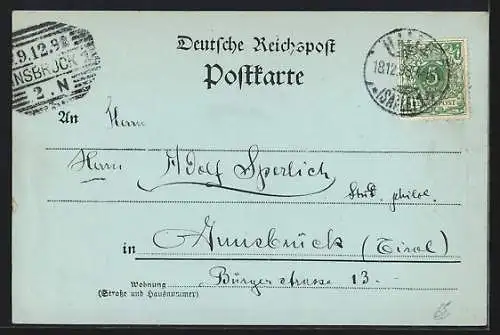 Deutsche Reichspost
Postkarte
9.12.9
NSBRUCK 1
2. N
18.12.98
5
POST
An Herrn
Herrn Adolf Sperlich
stud. philol.
in Innsbrück (Tirol)
Wohnung Bürgerstrasse 13.-
(Straße und Hausnummer)